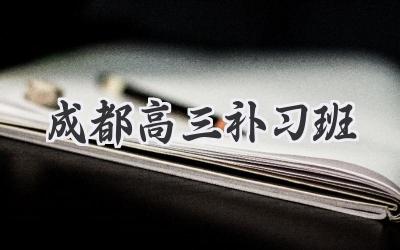 成都高三补习班